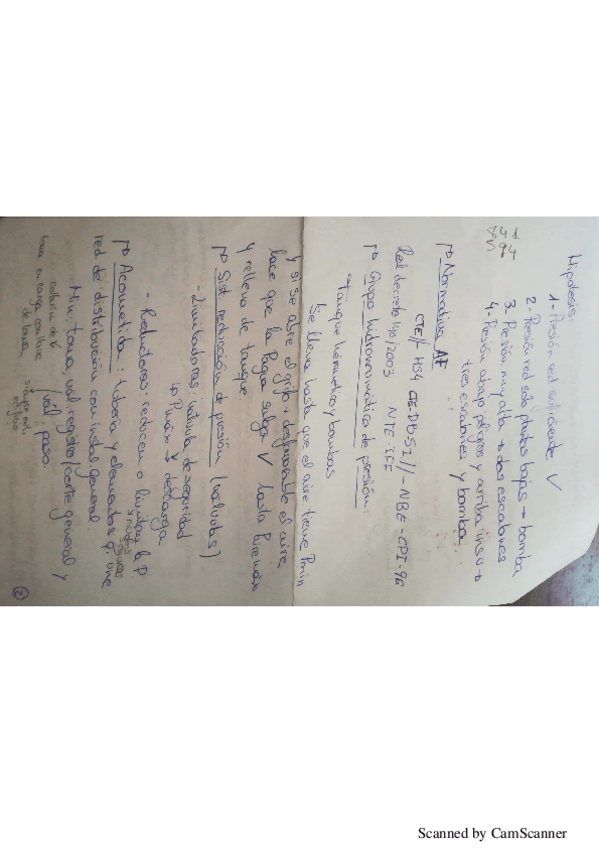 Hipótesis
1- Presión red suficiente ✓
2- Presión red sólo plantas bajas → bomba
3- Presión muy alta → dos escalones
4- Presión abajo peligros y arriba insu →
tres escalones y bomba
Normativa AF
CTE// HS4 DB-SI // - NBE - CPI-96
Real decreto 140/2003 NTE-IFF
Grupo hidroneumático de presión:
tanque hermético y bombas
Se llena hasta que el aire tiene Pmin
y si se abre el grifo + desfavorable el aire
hace que la Pagua salga ✓ hasta Pairemáx
y rellena de tanque
Sist. reducción de presión (válvulas)
- Limitadoras: válvula de seguridad
→ Pmáx → descarga
- Reductoras: reducen o limitan la P
Acometida: tubería y elementos q. une
red de distribución con instal general.
Min: toma, vál registro/corte general y
vál. paso
toma en carga con llave
de toma
2
Scanned by CamScanner